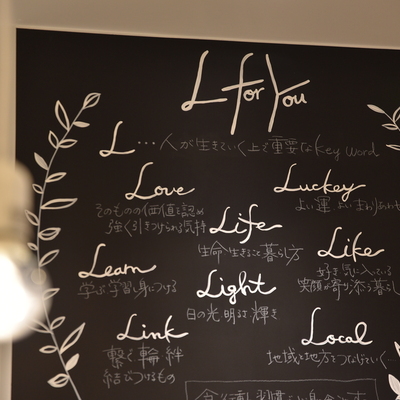 L for You
L…人が生きていく上で重要なKey word
Love
そのものの価値を認め
強く引きつけられる気持
Luckey
よい運 よいまわりあわせ
Life
生命 生きること 暮らし方
Like
好き 気に入っている
笑顔が寄り添う暮らし
Learn
学ぶ 学習し身につける
Light
日の光 明るさ 輝き
Link
繋ぐ 輪 絆
結びつけるもの
Local
地域と地方をつなげていく